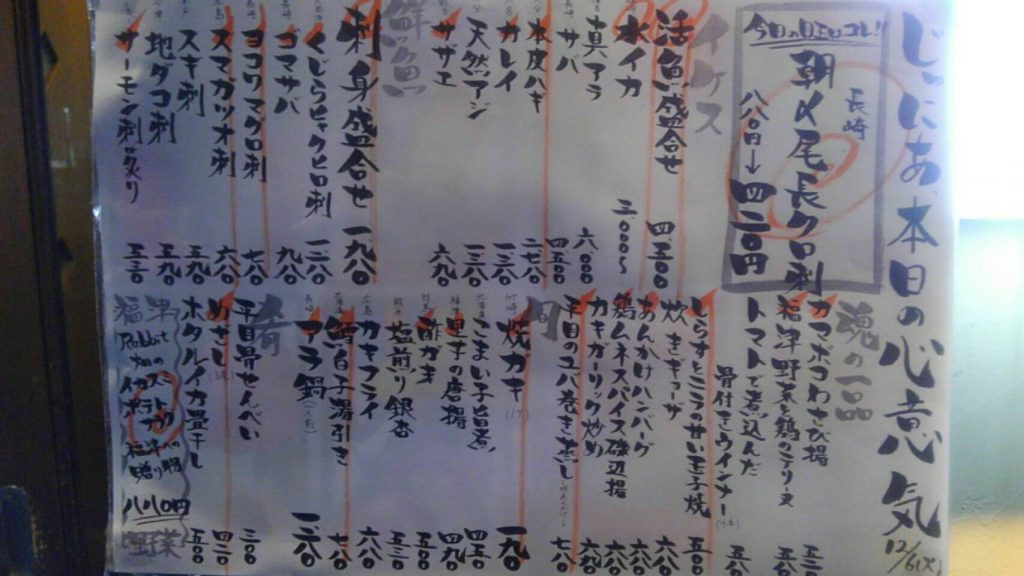 じゅにあ 本日の心意気 12/6(火)
今日の目玉はコレ!!
長崎
朝〆尾長クロ刺
八八〇円→四二〇円
イケス
活魚盛合せ 四五〇〇
水イカ 三、〇〇〇〜
真アラ 六〇〇〇
サバ 四五〇〇
本皮ハギ 二七八〇
カレイ 一三八〇
天然アジ 一三八〇
サザエ 六九〇
鮮魚
刺身盛合せ 一九八〇
くじらヒャクヒロ刺 一二八〇
ゴマサバ 九八〇
ヨコワマグロ刺 七八〇
スマガツオ刺 六八〇
スキ刺 五九〇
地ダコ刺 五九〇
サーモン刺 炙り 五三〇
魂の一品
カマボコわさび揚 五三〇
福津野菜と鶏のテリーヌ 五八〇
トマトで煮込んだ
骨付きウインナー(4本) 五八〇
しらすとニラの甘い玉子焼 五八〇
炊きギョーザ 六八〇
あんかけハンバーグ 六八〇
鶏ムネスパイス磯辺揚 六八〇
カキガーリック炒め 六八〇
平目のユバ巻き蒸し 七八〇
焼ガキ(1ケ) 一九〇
こまい子旨煮 四五〇
里芋の唐揚 四九〇
酢がき 五八〇
塩煎り銀杏 五三〇
カキフライ 六八〇
鱈白子湯引き 七八〇
アラ鍋(一人前) 一二八〇
肴
平目骨せんべい 三〇〇
めざし(3本) 四二〇
ホタルイカ畳干し 五八〇
福津
八八〇円
野菜